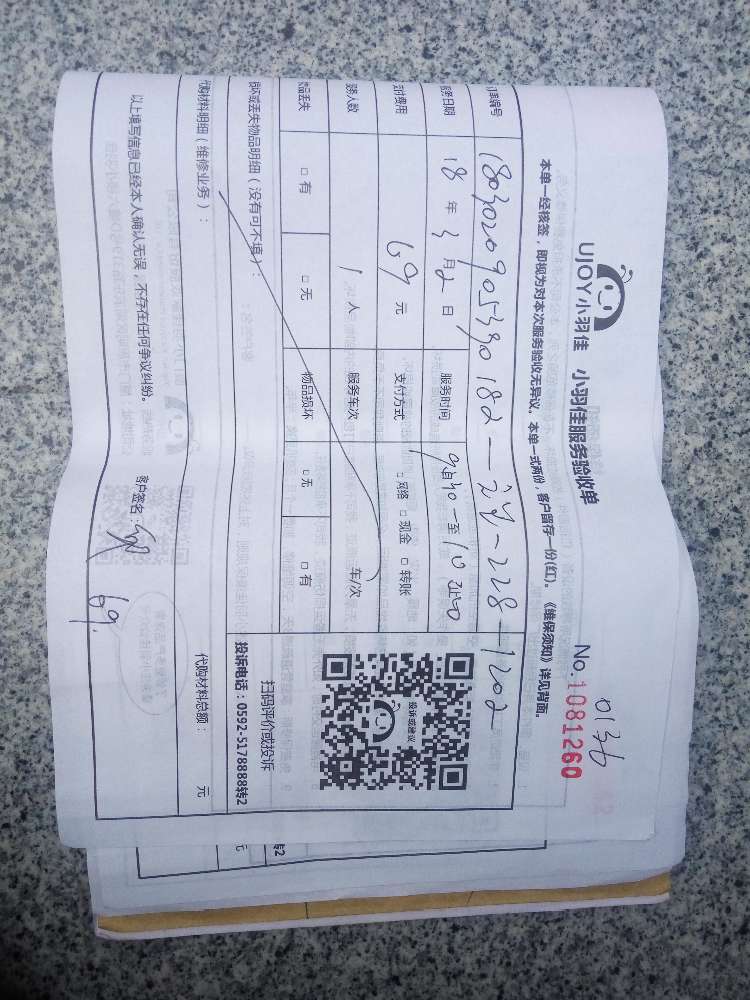 UJOY小羽佳 小羽佳服务验收单
0136
No.1081260
本单一经核签，即视为对本次服务验收无异议。本单一式两份，客户留存一份(红)。《维保须知》详见背面。
编号
服务日期 18 年 3 月 2 日 服务时间 至
支付费用 69 元 支付方式 □ 网络 □ 现金 □ 转账
服务人数 1 人 服务车次 车/次
物品丢失 □ 有 □ 无 物品损坏 □ 无 □ 有
损坏或丢失物品明细（没有可不填）：
投诉或建议
扫码评价或投诉
投诉电话：0592-5178888转2
代购材料明细（维修业务）：
代购材料总额： 元
以上填写信息已经本人确认无误，不存在任何争议纠纷。
客户签名：
69.
转2
元